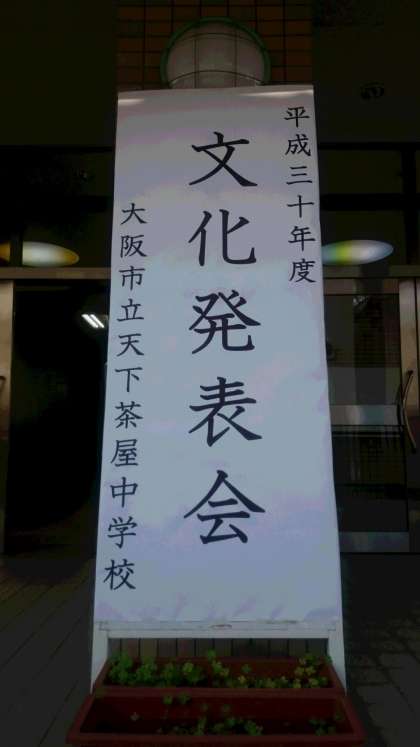 平成三十年度
文化発表会
大阪市立天下茶屋中学校